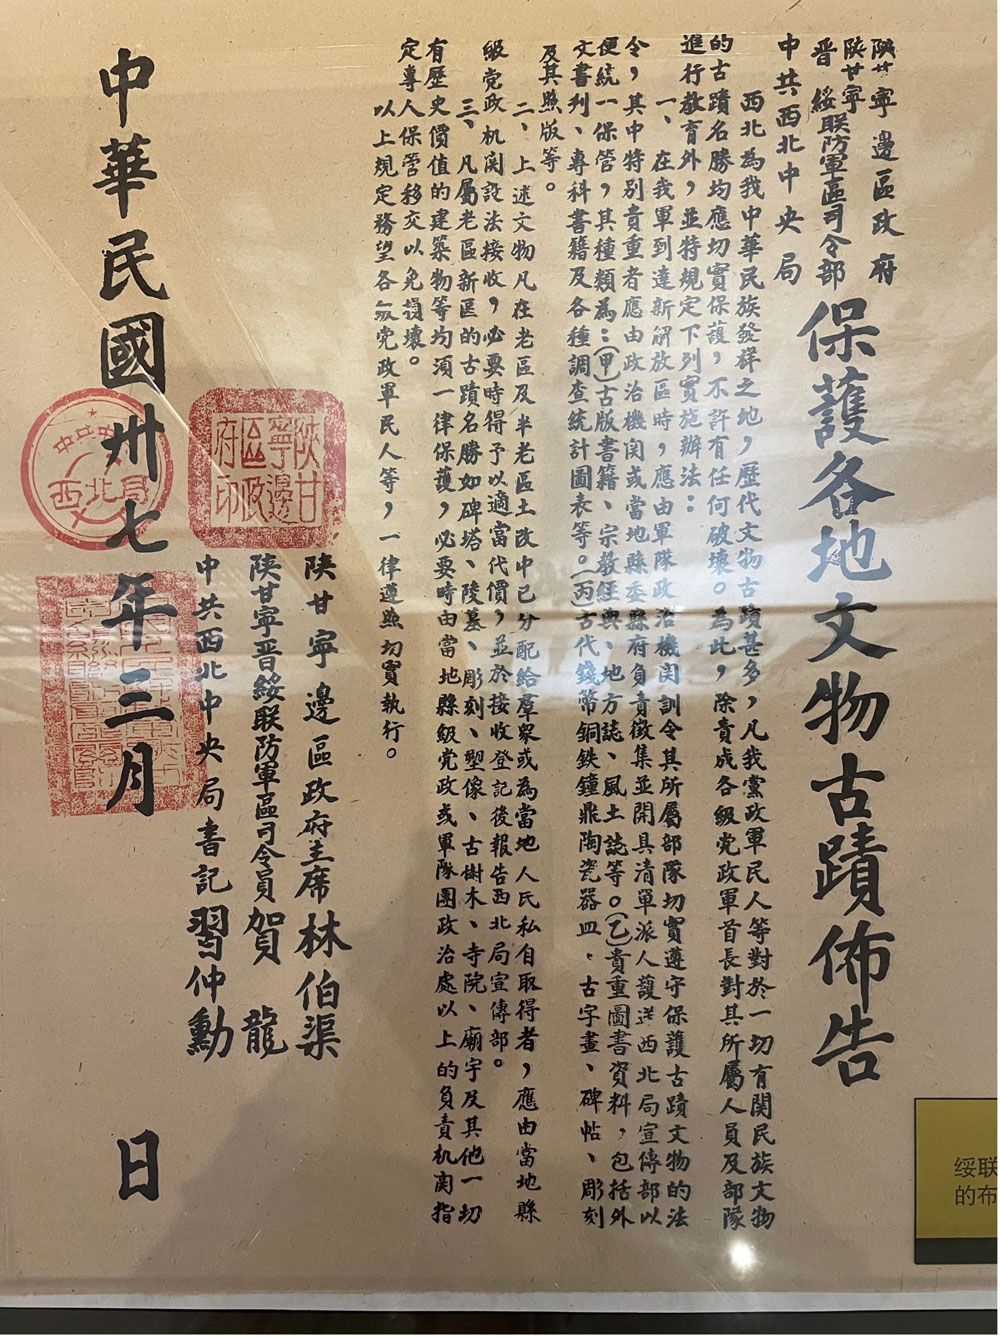 陝甘寧邊區政府
陝甘寧晋綏联防軍區司令部
中共西北中央局
保護各地文物古蹟佈告
西北為我中華民族發祥之地，歷代文物古蹟甚多，凡我黨政軍民人等對於一切有関民族文物
的古蹟名勝均應切實保護，不許有任何破壞。為此，除責成各級党政軍首長對其所屬人員及部隊
進行教育外，並特規定下列實施辦法：
一、在我軍到達新解放區時，應由軍隊政治機関訓令其所屬部隊切實遵守保護古蹟文物的法
令，其中特別貴重者應由政治機関或當地縣委縣府負責徵集並開具清單派人護送西北局宣傳部以
便統一保管，其種類為：(甲)古版書籍、宗教經典、地方誌、風土誌等。(乙)貴重圖書資料，包括外
文書刋、專科書籍及各種調查統計圖表等。(丙)古代錢幣銅鉄鐘鼎陶瓷器皿、古字畫、碑帖、彫刻
及其照版等。
二、上述文物凡在老區及半老區土改中已分配給羣眾或為當地人民私自取得者，應由當地縣
級党政机関設法接收，必要時得予以適當代價，並於接收登記後報告西北局宣傳部。
三、凡屬老區新區的古蹟名勝如碑塔、陵墓、彫刻、塑像、古樹木、寺院、廟宇及其他一切
有歷史價值的建築物等均須一律保護，必要時由當地縣級党政或軍隊團政治處以上的負責机関指
定專人保管移交以免損壞。
以上規定務望各級党政軍民人等，一律遵照切實執行。
陝甘寧邊區政府主席林伯渠
陝甘寧晋綏联防軍區司令員賀龍
中共西北中央局書記習仲勳
陝甘寧邊區政府印
中共中央西北局
中華民國卅七年三月 日
绥联
的布